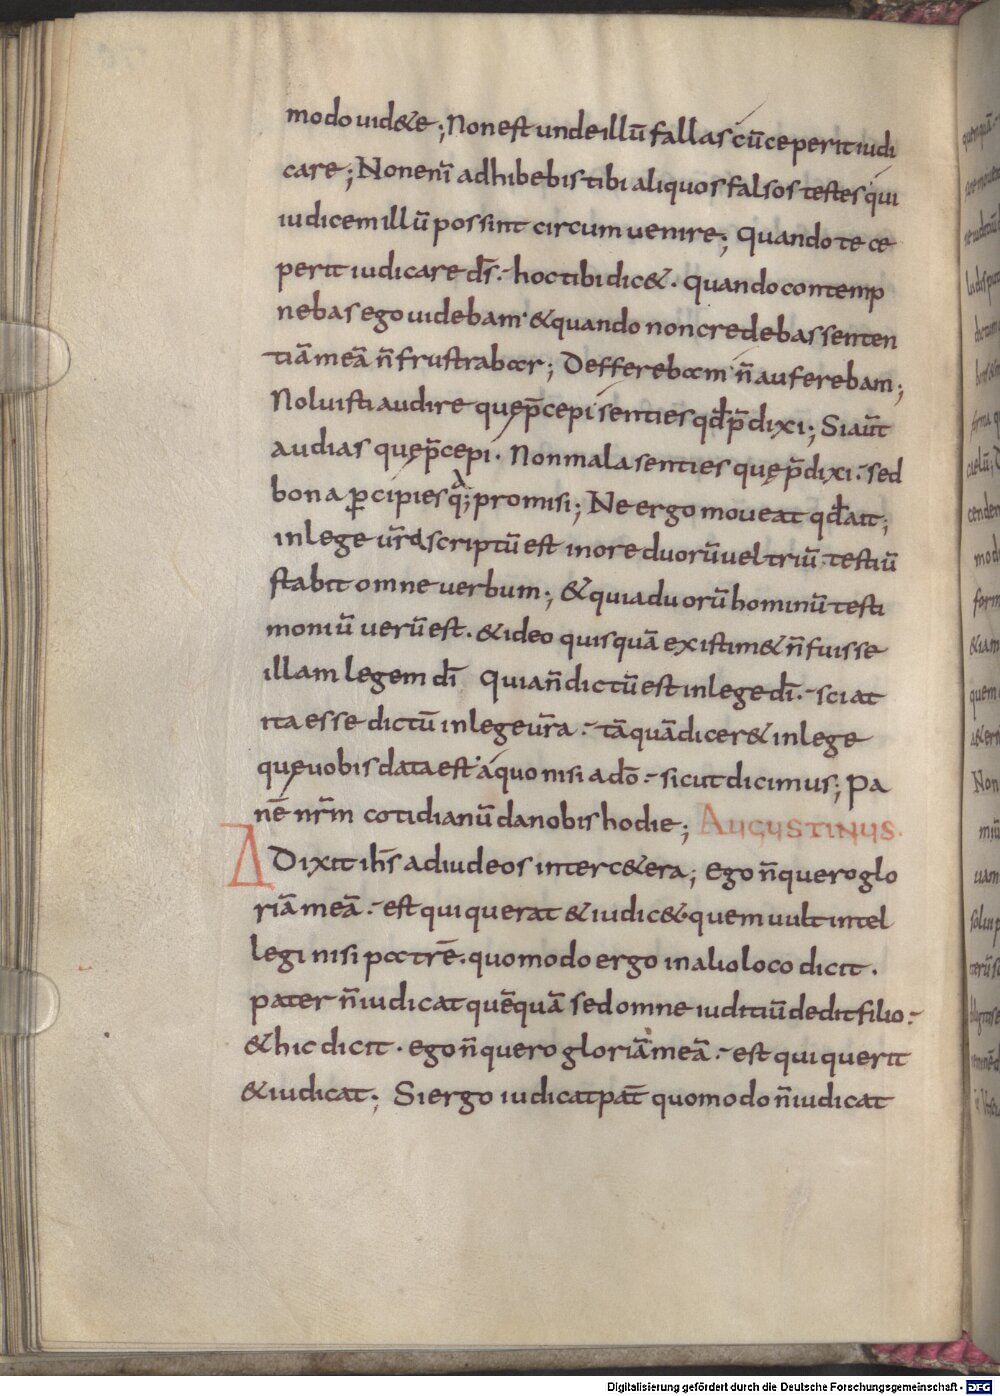 modo uid&e; Non est unde illū fallas cū ceperit iudi
care; Non enī adhibebis tibi aliquos falsos testes qui
iudicem illū possint circumuenire; Quando te ce
perit iudicare d̄s. hoc tibi dic&. quando contemp
nebas ego uidebam. & quando non credebas senten
tiā meā n̄ frustrabor; Defferebam n̄ auferebam;
Noluisti audire quę p̄cepi senties qđ p̄dixi; Si aūt
audias quę p̄cepi. Non mala senties quę p̄dixi. sed
bona ꝑcipies q; promisi; Ne ergo moueat qđ ait;
in lege ūra scriptū est in ore duorū uel triū testiū
stabit omne verbum; & quia duorū hominū testi
moniū verū est. & ideo quisquā existim& n̄ fuisse
illam legem dī Quia n̄ dictū est in lege dī. sciat
ita esse dictū in lege ūra. tāquā dicer& in lege
quę uobis data est a quo nisi a dō. sicut dicimus; Pa
nē nr̄m cotidianū da nobis hodie; AUGUSTINUS.
A Dixit ih̄s ad iudeos inter c&era; Ego n̄ quero glo
riā meā. est qui querat & iudic&. quem uult intel
legi nisi patrē. quomodo ergo in alio loco dicit.
pater n̄ iudicat quēquā sed omne iuditiū dedit filio.
& hic dicit. ego n̄ quero gloriā meā. est qui querit
& iudicat; Si ergo iudicat pat̄ quomodo n̄ iudicat
Digitalisierung gefördert durch die Deutsche Forschungsgemeinschaft - DFG